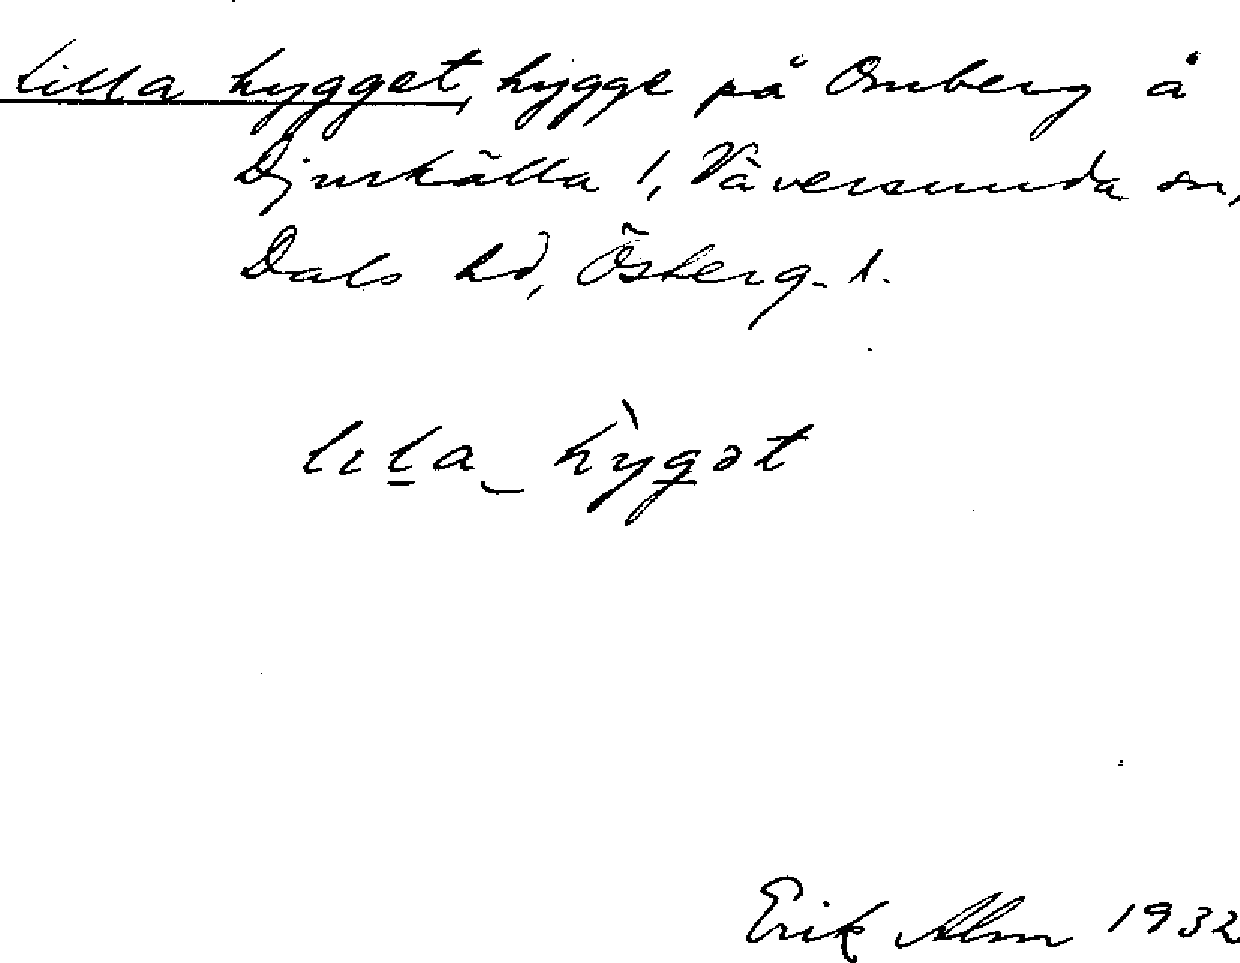 Lilla hygget, hygge på Omberg å
Djurkälla 1, Väversunda sn,
Dals hd, Österg. l.
lıl̲a‿ hỳg̲ət
Erik Alm 1932